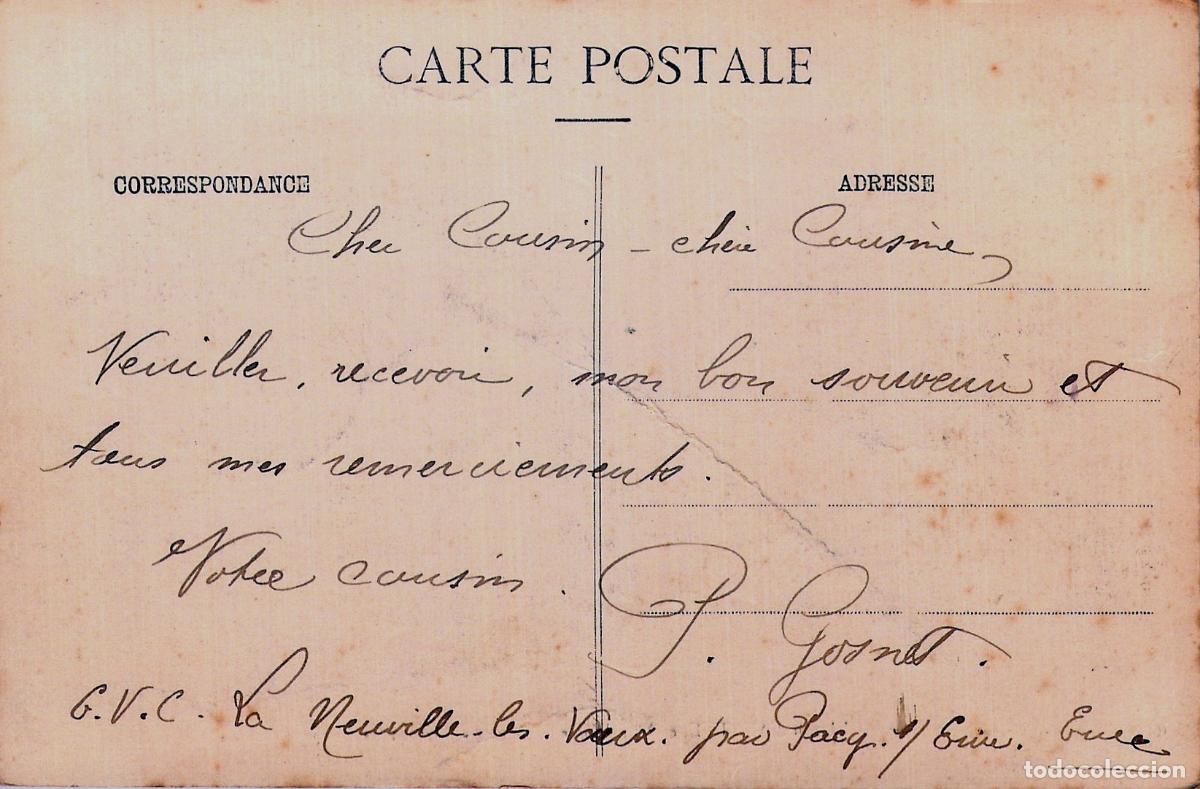 CARTE POSTALE
CORRESPONDANCE
ADRESSE
Cher Cousin - chère Cousine,
Veuiller, recevoir, mon bon souvenir et
tous mes remerciements.
Votre cousin.
P. Gosnet.
G.V.C. La Neuville-les-Vaux. par Pacy. s/ Eure. Eure
todocoleccion